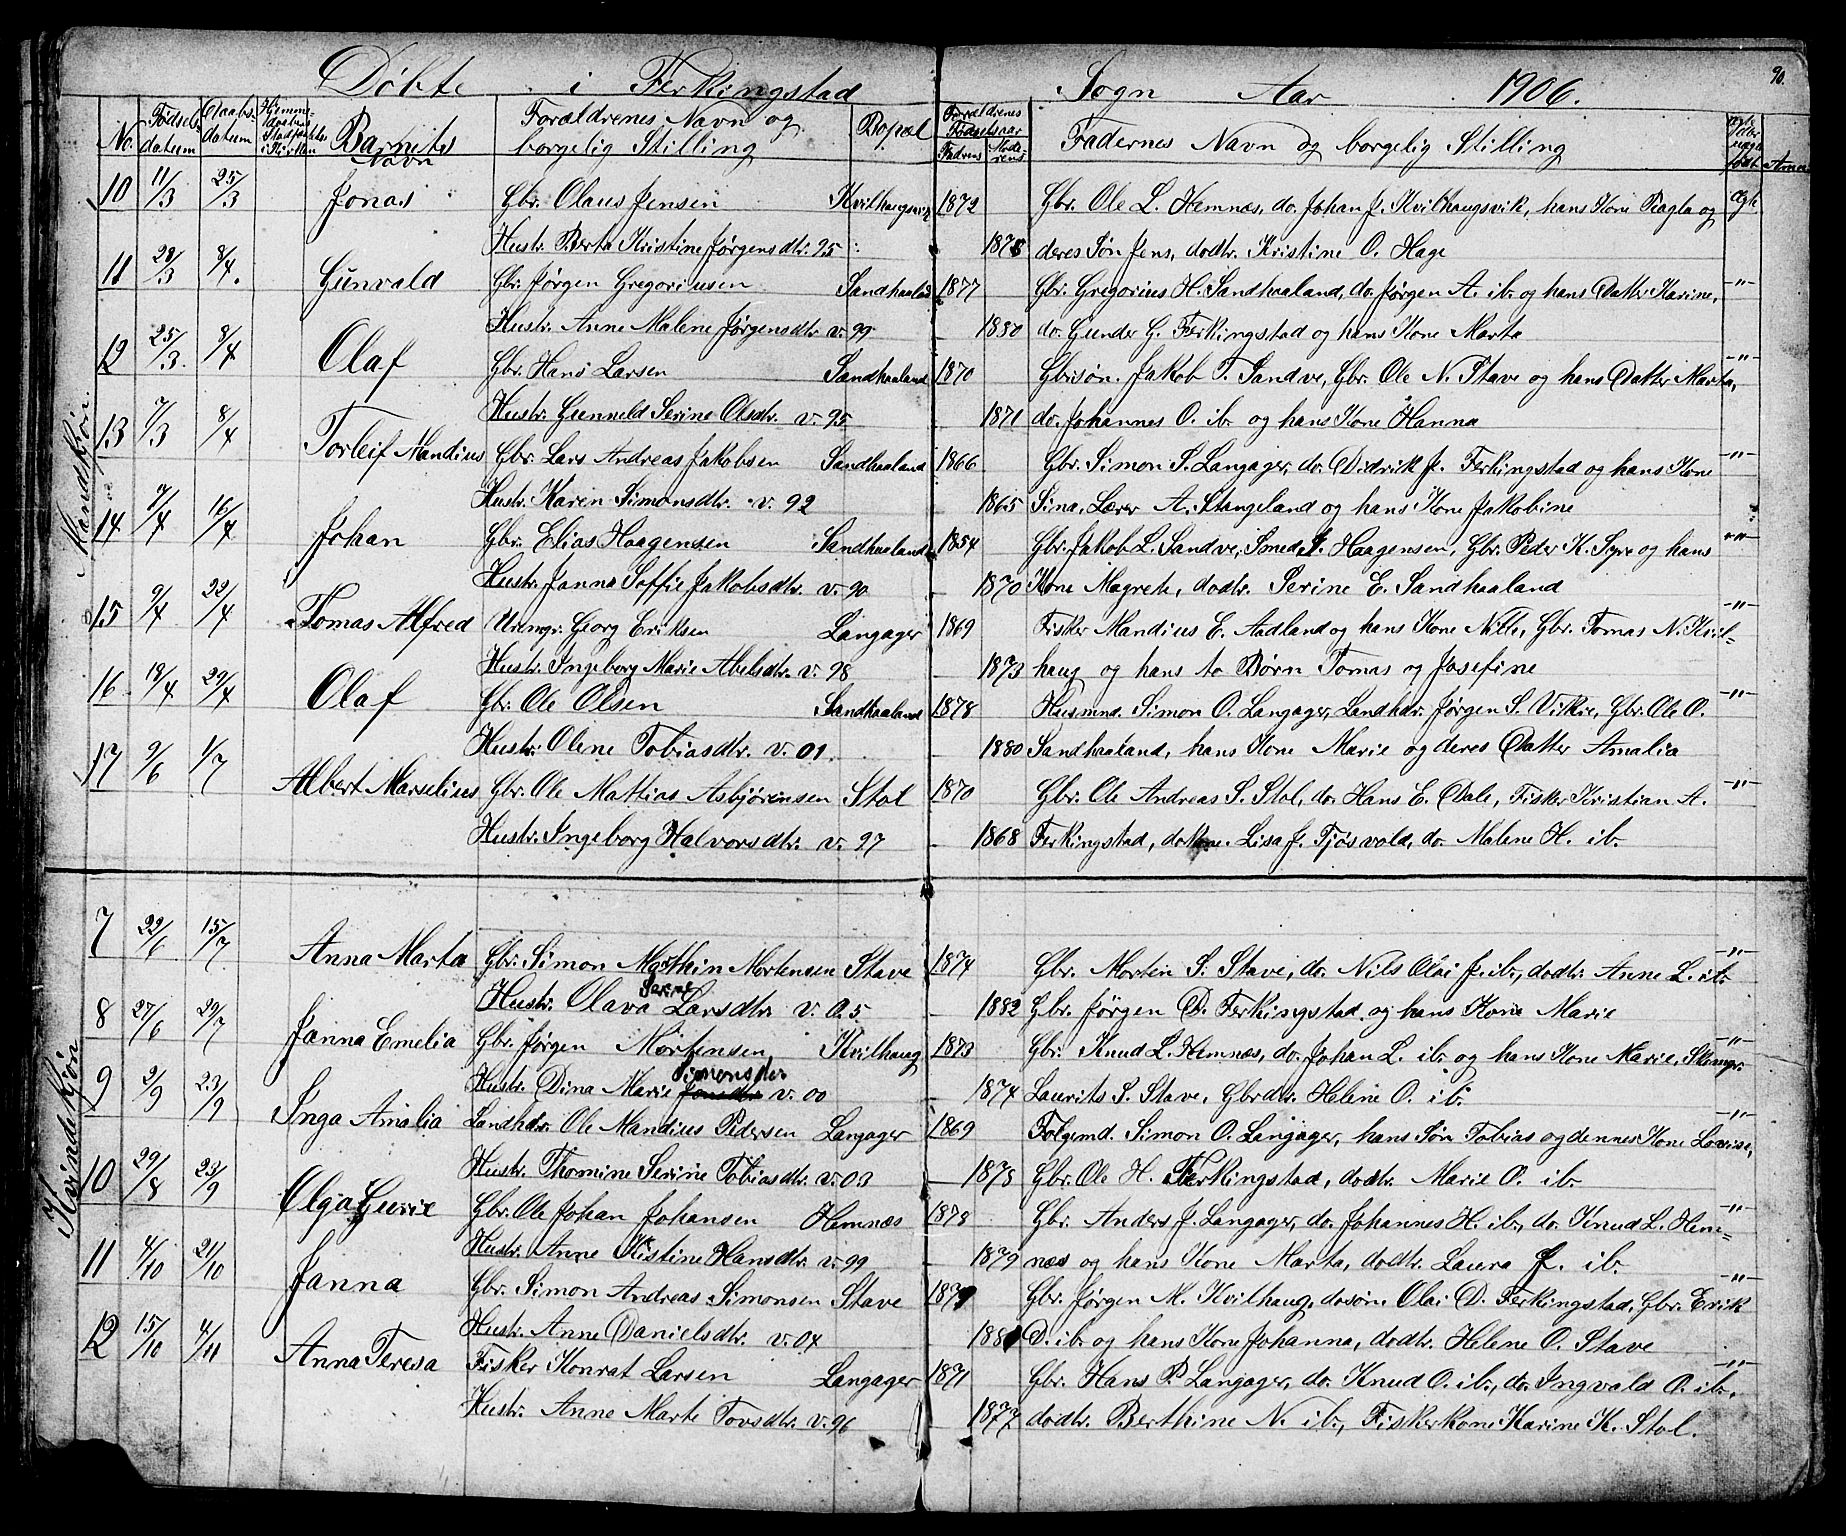 Døbte i Ferkingstad Sogn Aar 1906. 90.
No. Fødsels-datum Daabs-datum Hjemme-daabens Stadfæstelse i Kirken Barnets Navn Forældrenes Navn og borgelig Stilling Bopæl Forældrenes Fødselsaar Fadrens Moderens Faddernes Navn og borgelig Stilling
Mandkjøn.
10 11/3 25/3 Jonas Gbr. Olaus Jensen Kvilhaugsvik 1872 Gbr. Ole L. Hemnæs, do. Johan J. Kvilhaugsvik, hans Kone Ragla og Ægte
Hustr. Berta Kristine Jørgensdtr. 95 1878 deres Søn Jens, dodtr. Kristine O. Hage
11 28/3 8/4. Gunvald Gbr. Jørgen Gregoriusen Sandhaaland 1877 Gbr. Gregorius H. Sandhaaland, do. Jørgen A. ib. og hans Datter Karine, -"-
Hustr. Anne Malene Jørgensdtr. v. 99 1880 do. Gunder G. Ferkingstad og hans Kone Marta
12 25/3. 8/4 Olaf Gbr. Hans Larsen Sandhaaland 1870 Gbrsøn. Jakob T. Sandve, Gbr. Ole N. Stave og hans Datter Marta, -"-
Hustr. Gunneld Serine Olsdtr. v. 95 1871 do. Johannes O. ib. og hans Kone Hanna
13 7/3 8/4 Torleif Mandius Gbr. Lars Andreas Jakobsen Sandhaaland 1866 Gbr. Simon S. Langager, do. Didrik J. Ferkingstad og hans Kone -"-
Hustr. Karen Simonsdtr. v. 92 1865 Sina, Lærer A. Stangeland og hans Kone Jakobine
14 7/4 16/4 Johan Gbr. Elias Haagensen Sandhaaland 1854 Gbr. Jakob L. Sandve, Smed T. Haagensen, Gbr. Peder K. Syre og hans -"-
Hustr. Janna Soffie Jakobsdtr. v. 90 1870 Kone Magrete, dodtr. Serine E. Sandhaaland
15 9/4 22/4 Tomas Alfred Urmgr. Georg Eriksen Langager 1869 Fisker Mandius E. Aadland og hans Kone Nille, Gbr. Tomas N. Kvil- -"-
Hustr. Ingeborg Marie Abelsdtr. v. 98 1873 haug og hans to Børn Tomas og Josefine
16 18/4 29/4 Olaf Gbr. Ole Olsen Sandhaaland 1878 Husmnd. Simon O. Langager, Landhdr. Jørgen S. Vikre, Gbr. Ole O. -"-
Hustr. Olene Tobiasdtr. v. 01. 1880 Sandhaaland, hans Kone Marie og deres Datter Amalia
17 9/6 1/7 Albert Marselius Gbr. Ole Mattias Asbjørnsen Stol 1870 Gbr. Ole Andreas S. Stol, do. Hans E. Dale, Fisker Kristian A. -"-
Hustr. Ingeborg Halvorsdtr. v. 97 1868 Ferkingstad, dokone. Lisa J. Tjøsvold, do. Malene H. ib.
Kvindekjøn
7 22/6 15/7 Anna Marta Gbr. Simon Marthin Mortensen Stave 1874 Gbr. Morten S. Stave, do. Nils Olai J. ib., dodtr. Anne L. ib. -"-
Hustr. Olava Serine Larsdtr. v. 05 1882 Gbr. Jørgen D. Ferkingstad og hans Kone Marie
8 27/6 29/7 Janna Emelia Gbr. Jørgen Mortensen, Kvilhaug 1873 Gbr. Knud L. Hemnæs, do. Johan L. ib. og hans Kone Marie, Skomgr. -"-
Hustr. Dina Marie Simonsdtr. v. 00 1874 Laurits S. Stave, Gbrdtr. Helene O. ib.
9 2/9 23/9 Inga Amalia Landhdr. Ole Mandius Pedersen Langager 1869 Følgemd. Simon O. Langager, hans Søn Tobias og dennes Kone Lovise, -"-
Hustr. Thomine Serine Tobiasdtr. v. 03 1878 Gbr. Ole H. Ferkingstad, dodtr. Marie O. ib.
10 29/8 23/9 Olga Gurie Gbr. Ole Johan Johansen Hemnæs 1878 Gbr. Anders J. Langager, do. Johannes H. ib., do. Knud L. Hem- -"-
Hustr. Anne Kistine Hansdtr. v. 99 1879 næs og hans Kone Marta, dodtr. Laura J. ib.
11 4/10 21/10 Janna Gbr. Simon Andreas Simonsen Stave Gbr. Jørgen M. Kvilhaug, dosøn. Olai D. Ferkingstad, Gbr. Erik -"-
Hustr. Anne Danielsdtr. v. 04 D. ib. og hans Kone Johanna, dodtr. Helene O. Stave
12 15/10 4/11 Anna Teresa Fisker Konrat Larsen Langager 1871 Gbr. Hans P. Langager, do. Knud O. ib., do. Ingvald O. ib., -"-
Hustr. Anne Marte Tovsdtr. v. 96 1877 dodtr. Berthine N. ib., Fiskerkone Karine K. Stol.